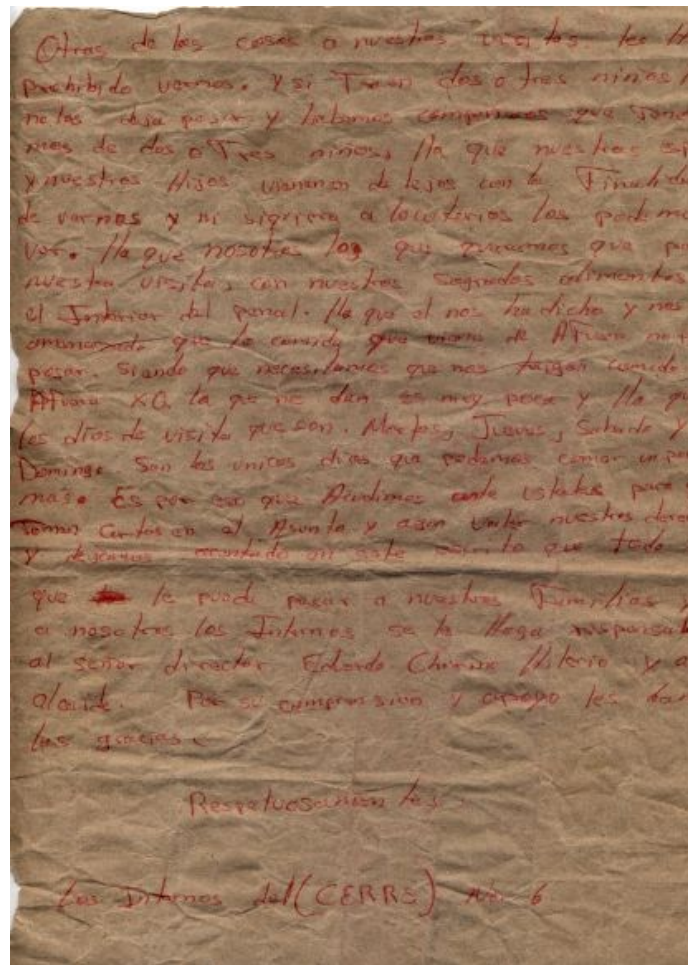 Otras de las cosas a nuestras visitas les
prohibido vernos. Y si Traen dos o tres niños
no los deja pasar y habemos compañeros que Tene
mos de dos o Tres niños, lla que nuestras
y nuestros Hijos vienenen de lejos con la
de vernos y ni siquiera a locutorios los podemos
ver. lla que nosotros los que queremos que
nuestra visita, con nuestros sagrados alimentos
el Interior del penal. lla que el nos ha dicho y nos
que la comida que viene de AFuera no
pasar. Siendo que necesitamos que nos traigan comida
AFuera XQ. la que nos dan es muy poca y lla que
los días de visita que son. Martes, Jueves, Sabado y
Domingo Son los unicos dias que podemos comer un po
mas. Es por eso que Acudimos ante ustedes para
Toman Cartas en el Asunto y agan valer nuestros derec
y dejamos en este escrito que todo
que le puede pasar a nuestras Familias y
a nosotros los Internos se le Haga responsab
al señor director Edardo Chirino y a
alcaide. Por su compression y apoyo les
las gracias.
Respetuosamentes.
Los Internos del (CERRS) No. 6